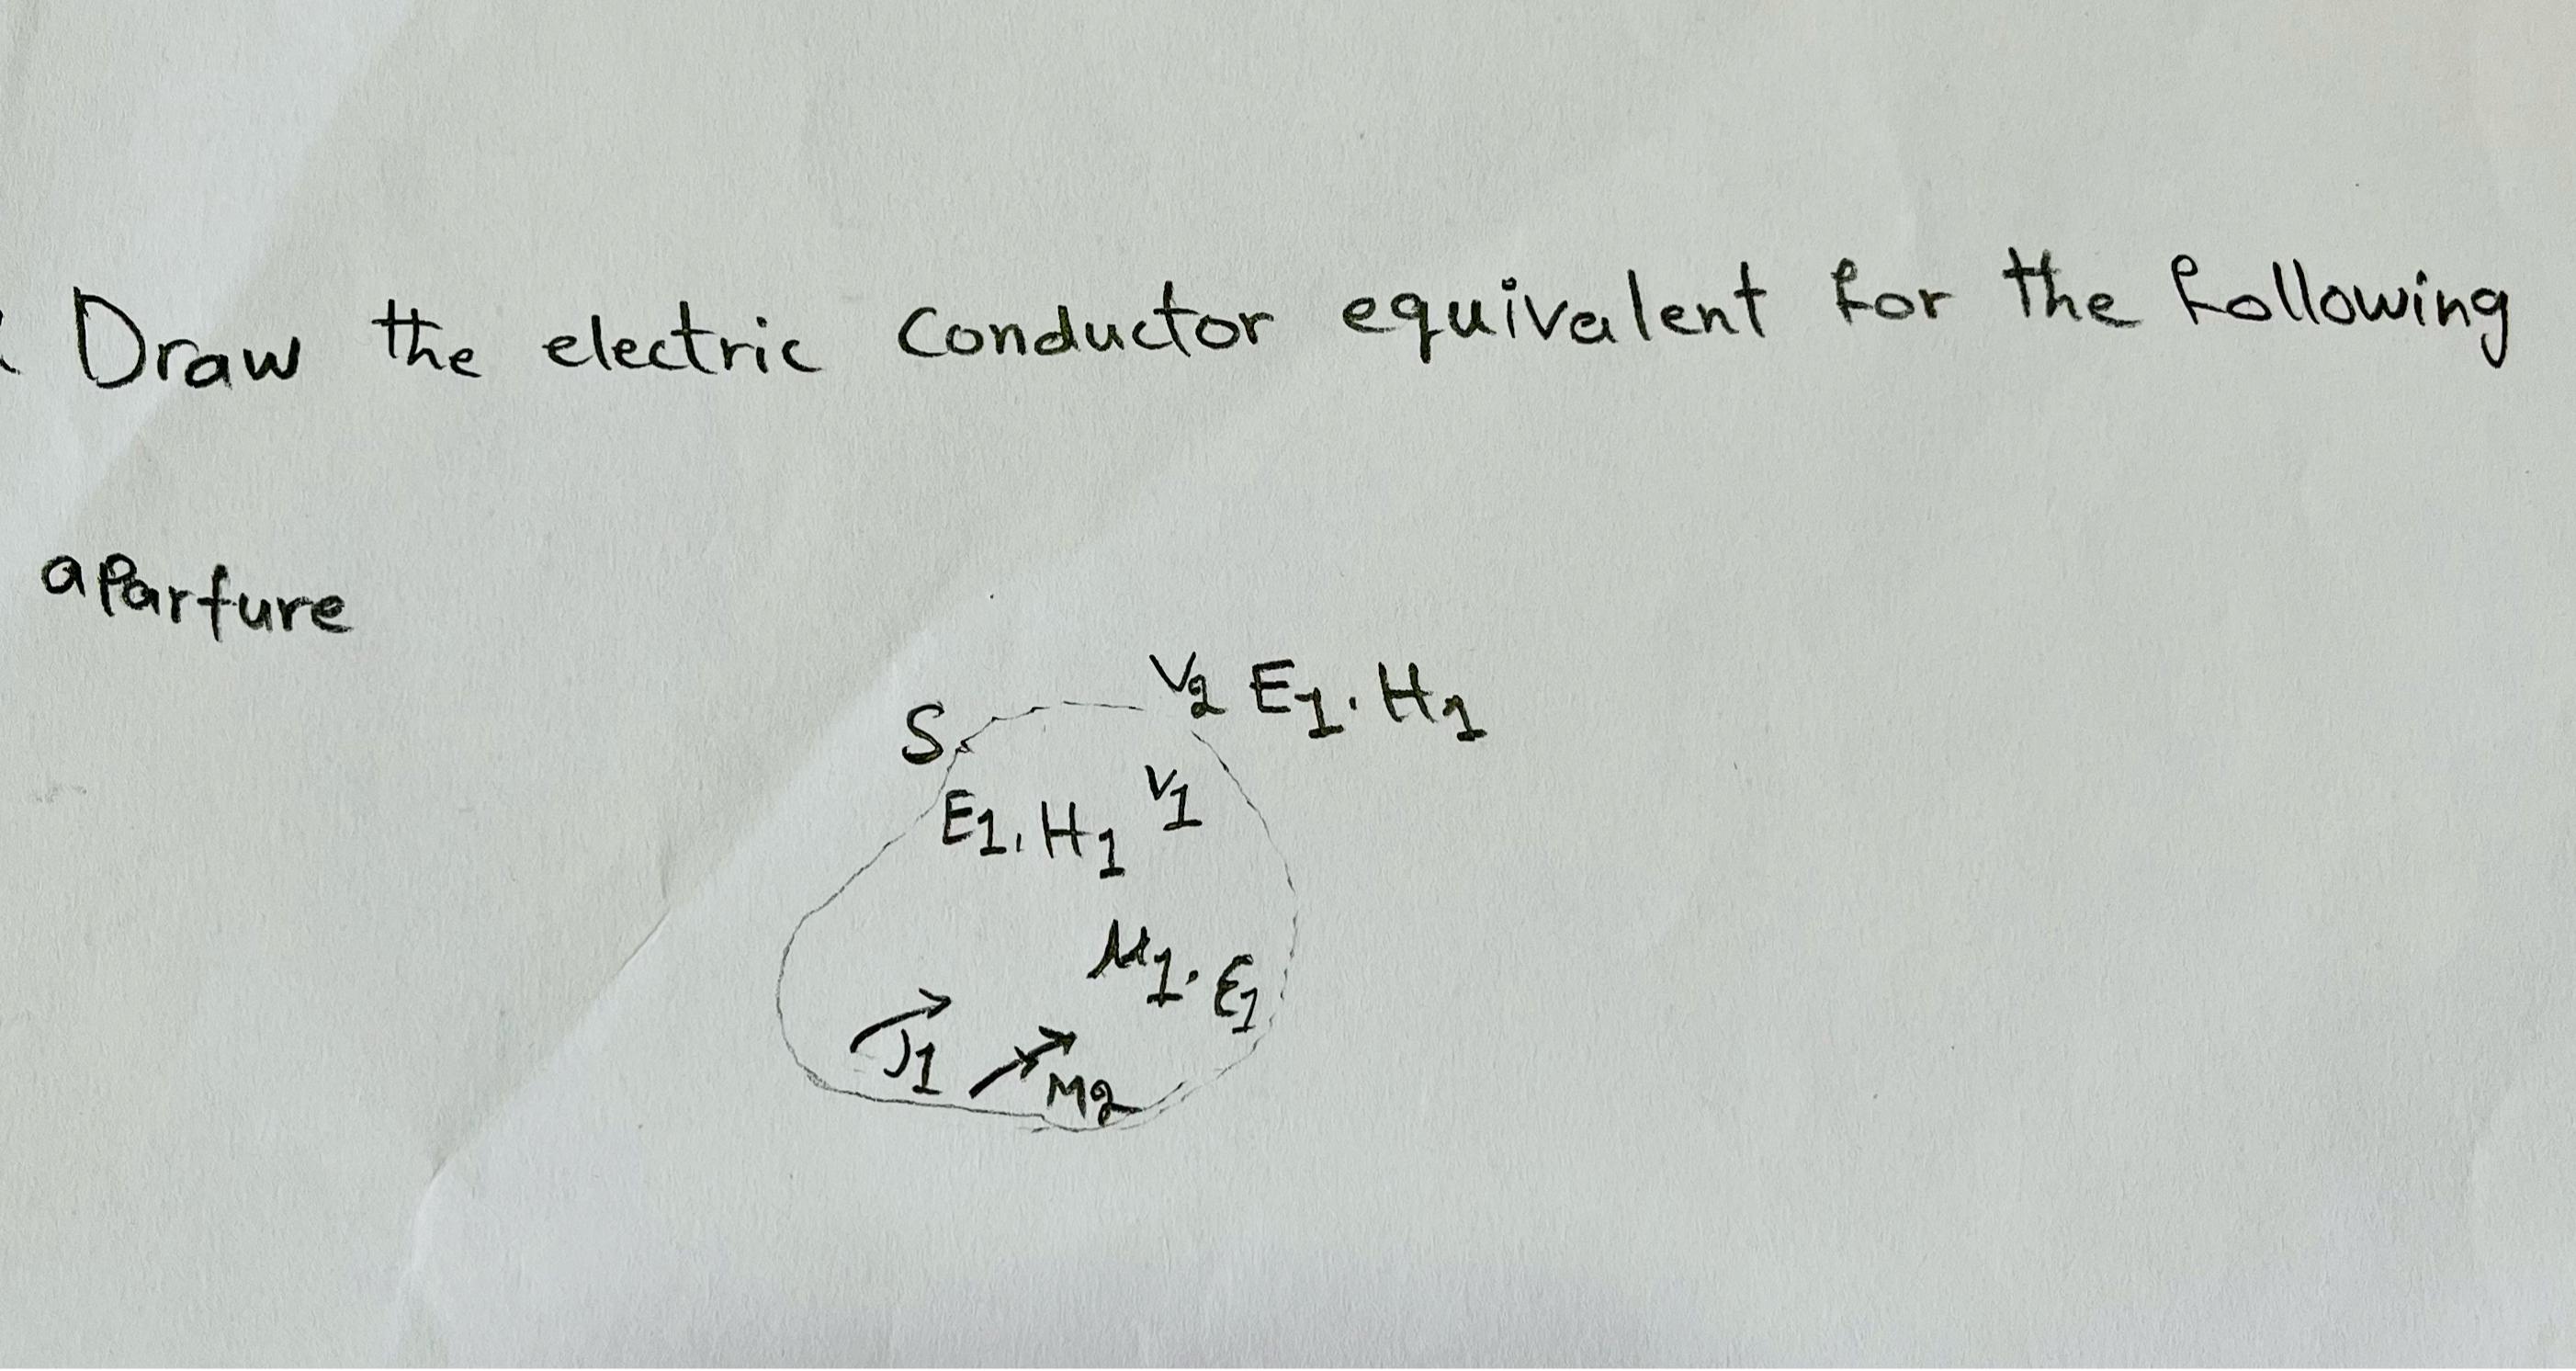 Draw the electric conductor equivalent for the following
aparture
S V2 E1. H1
E1. H1 V1
μ1. ε1
J1 M2